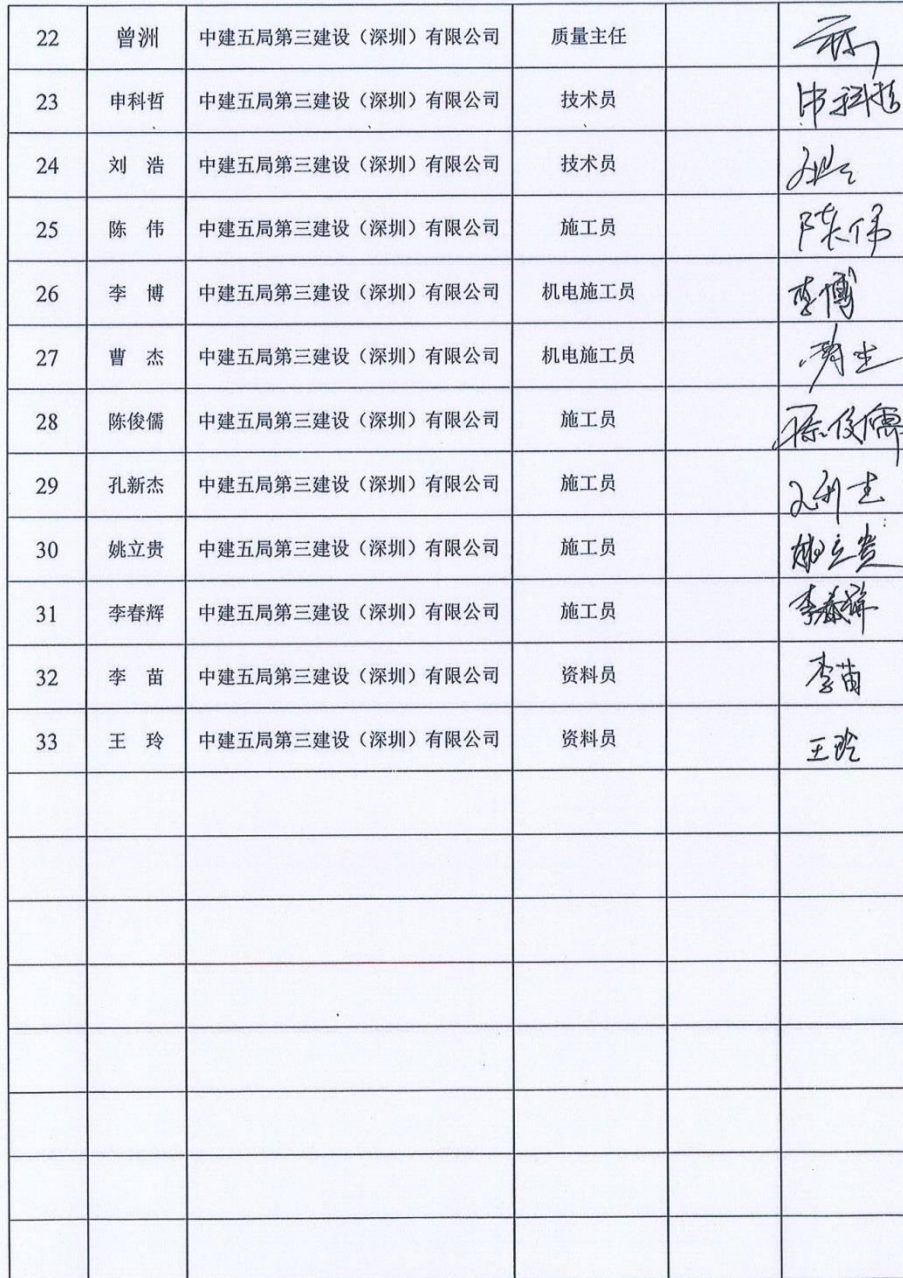 22 曾洲 中建五局第三建设（深圳）有限公司 质量主任
23 申科哲 中建五局第三建设（深圳）有限公司 技术员 申科哲
24 刘 浩 中建五局第三建设（深圳）有限公司 技术员
25 陈 伟 中建五局第三建设（深圳）有限公司 施工员 陈伟
26 李 博 中建五局第三建设（深圳）有限公司 机电施工员 李博
27 曹 杰 中建五局第三建设（深圳）有限公司 机电施工员
28 陈俊儒 中建五局第三建设（深圳）有限公司 施工员 陈俊儒
29 孔新杰 中建五局第三建设（深圳）有限公司 施工员
30 姚立贵 中建五局第三建设（深圳）有限公司 施工员 姚立贵
31 李春辉 中建五局第三建设（深圳）有限公司 施工员 李春辉
32 李 苗 中建五局第三建设（深圳）有限公司 资料员 李苗
33 王 玲 中建五局第三建设（深圳）有限公司 资料员 王玲